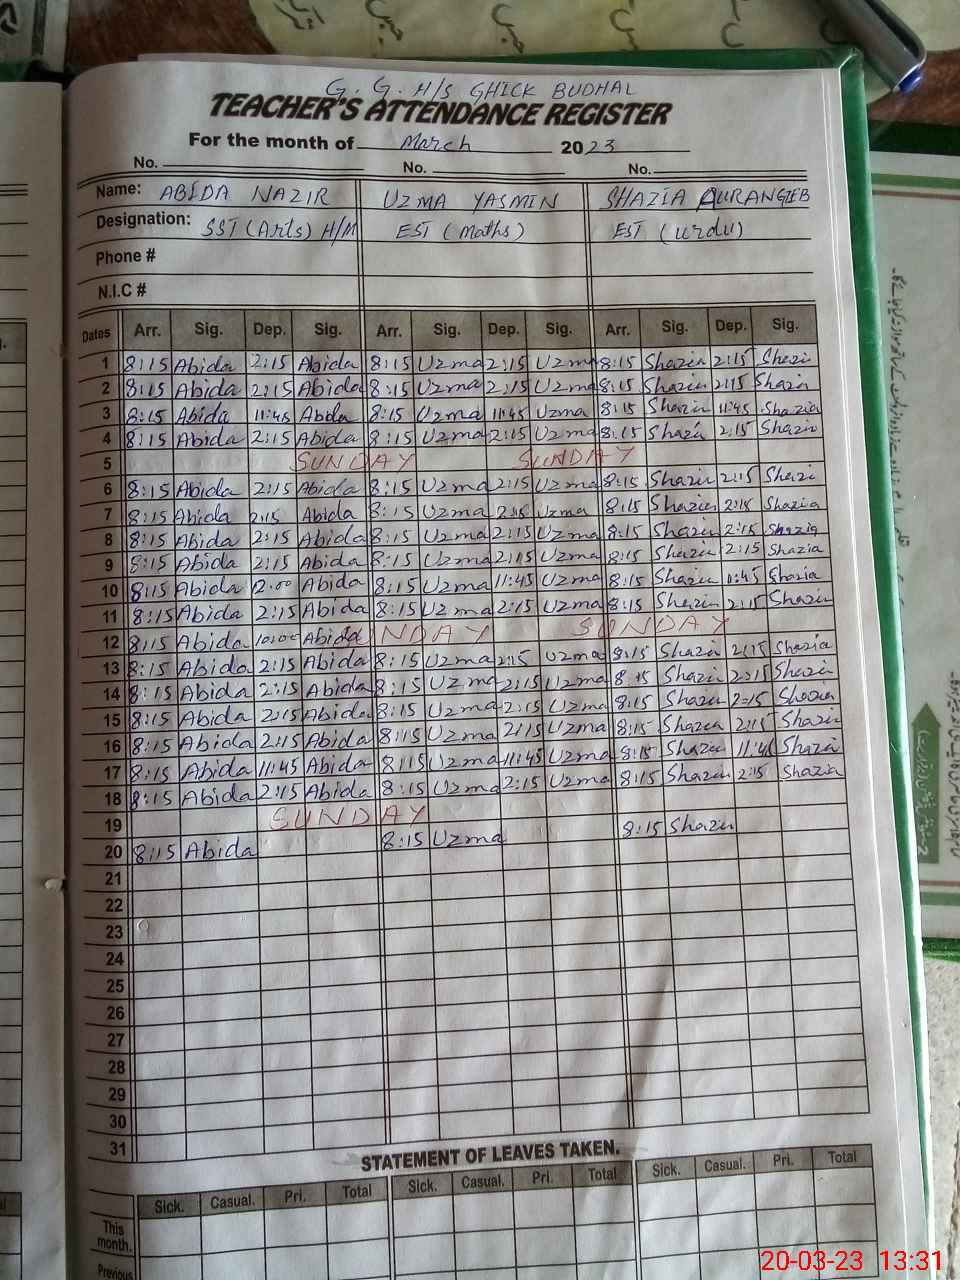 G. G. H/S GHICK BUDHAL
TEACHER'S ATTENDANCE REGISTER
For the month of March 2023
No. No. No.
Name: ABIDA NAZIR UZMA YASMIN SHAZIA AURANGZEB
Designation: SST (Arts) H/M EST (Maths) EST (urdu)
Phone #
N.I.C #
Dates Arr. Sig. Dep. Sig. Arr. Sig. Dep. Sig. Arr. Sig. Dep. Sig.
1 8:15 Abida 2:15 Abida 8:15 Uzma 2:15 Uzma 8:15 Shazia 2:15 Shazia
2 8:15 Abida 2:15 Abida 8:15 Uzma 2:15 Uzma 8:15 Shazia 2:15 Shazia
3 8:15 Abida 11:45 Abida 8:15 Uzma 11:45 Uzma 8:15 Shazia 11:45 Shazia
4 8:15 Abida 2:15 Abida 8:15 Uzma 2:15 Uzma 8:15 Shazia 2:15 Shazia
5 SUNDAY SUNDAY
6 8:15 Abida 2:15 Abida 8:15 Uzma 2:15 Uzma 8:15 Shazia 2:15 Shazia
7 8:15 Abida 2:15 Abida 8:15 Uzma 2:15 Uzma 8:15 Shazia 2:15 Shazia
8 8:15 Abida 2:15 Abida 8:15 Uzma 2:15 Uzma 8:15 Shazia 2:15 Shazia
9 8:15 Abida 2:15 Abida 8:15 Uzma 2:15 Uzma 8:15 Shazia 2:15 Shazia
10 8:15 Abida 12:00 Abida 8:15 Uzma 11:45 Uzma 8:15 Shazia 11:45 Shazia
11 8:15 Abida 2:15 Abida 8:15 Uzma 2:15 Uzma 8:15 Shazia 2:15 Shazia
12 8:15 Abida 10:00 Abida SUNDAY SUNDAY
13 8:15 Abida 2:15 Abida 8:15 Uzma 2:15 Uzma 8:15 Shazia 2:15 Shazia
14 8:15 Abida 2:15 Abida 8:15 Uzma 2:15 Uzma 8:15 Shazia 2:15 Shazia
15 8:15 Abida 2:15 Abida 8:15 Uzma 2:15 Uzma 8:15 Shazia 2:15 Shazia
16 8:15 Abida 2:15 Abida 8:15 Uzma 2:15 Uzma 8:15 Shazia 2:15 Shazia
17 8:15 Abida 11:45 Abida 8:15 Uzma 11:45 Uzma 8:15 Shazia 11:45 Shazia
18 8:15 Abida 2:15 Abida 8:15 Uzma 2:15 Uzma 8:15 Shazia 2:15 Shazia
19 SUNDAY
20 8:15 Abida 8:15 Uzma 8:15 Shazia
21
22
23
24
25
26
27
28
29
30
31
STATEMENT OF LEAVES TAKEN.
Sick. Casual. Pri. Total Sick. Casual. Pri. Total Sick. Casual. Pri. Total
This
month.
Previous
20-03-23 13:31